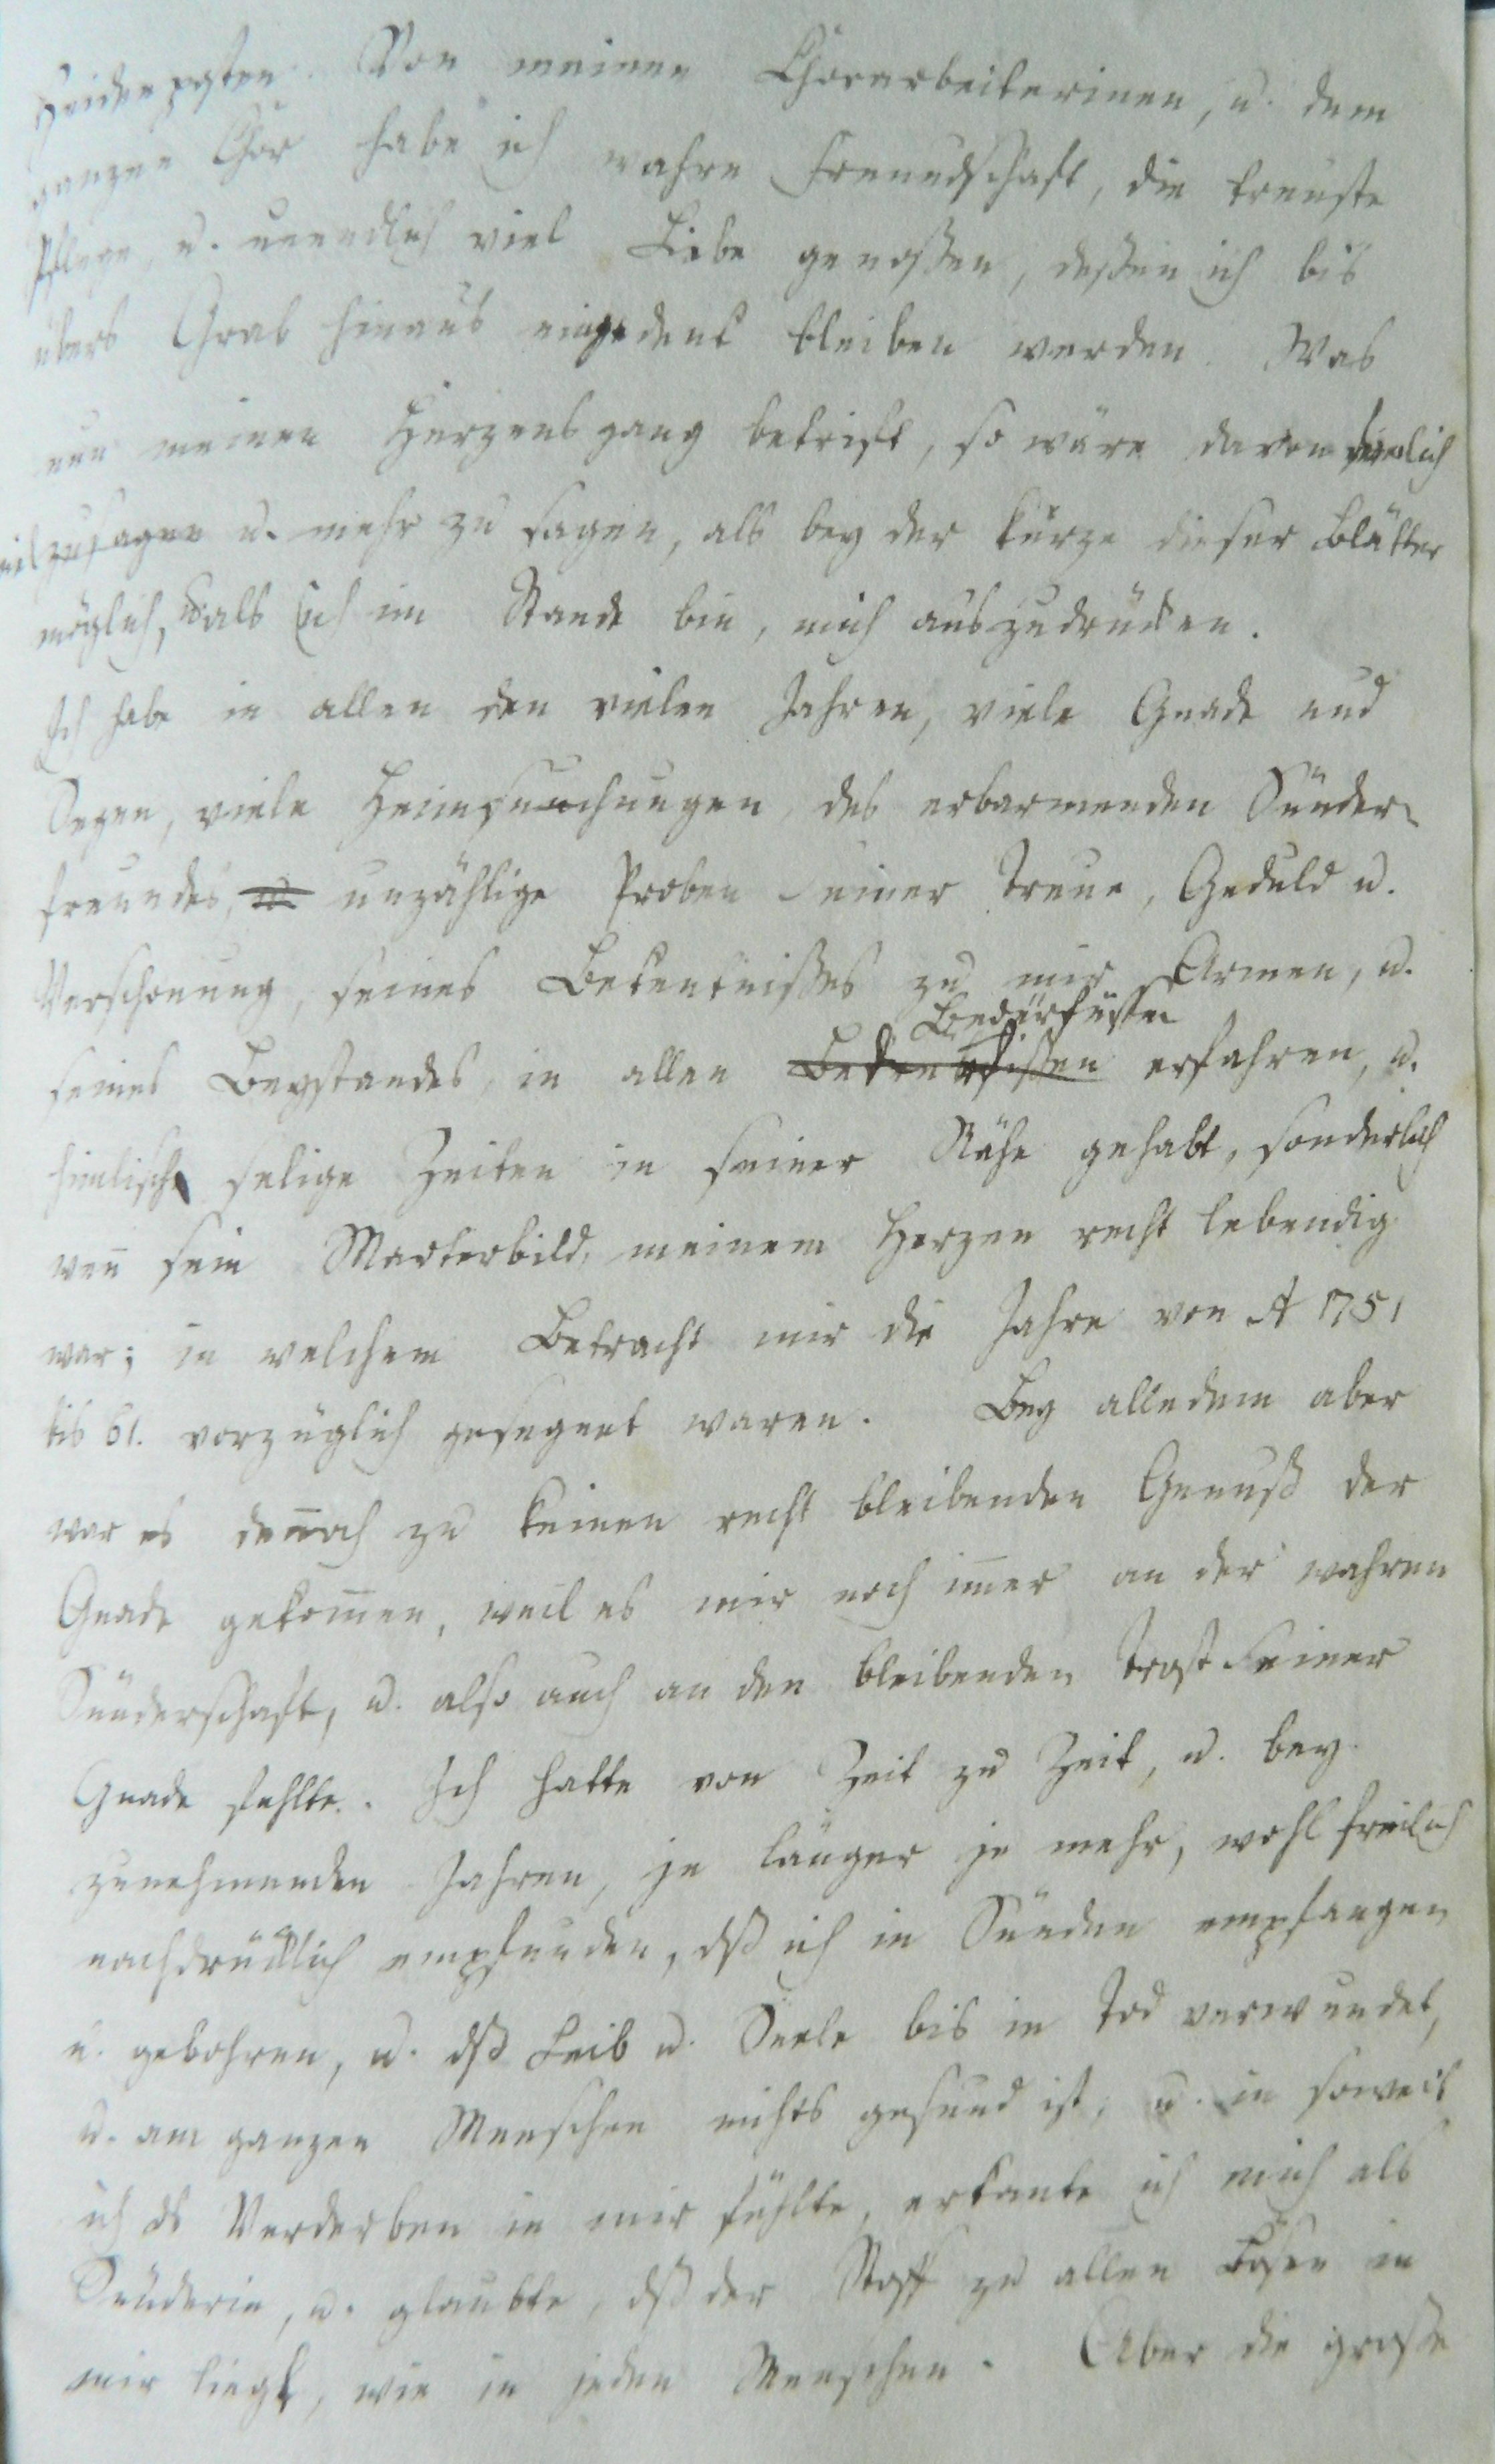 Heidenposten. Von meinen Chorarbeiterinen, u. dem
ganzen Chor habe ich wahre Freundschaft, die treuste
Pflege, u. unendlich viel Liebe genoßen, deßen ich bis
übers Grab hinaus eingedenk bleiben werden. Was
nun meinen Herzensgang betrift, so wäre davon
viel zusagen u. mehr zu sagen, als bey der Kürze dieser Blätter
möglich, u. als ich im Stande bin, mich auszudrücken.
Ich habe in allen den vielen Jahren, viele Gnade und
Segen, viele Heimsuchungen, des erbarmenden Sünder-
freundes, u. unzählige Proben seiner Treue, Geduld u.
Verschonung, seines Bekentnißes zu mir Armen, u.
Bedürfnißen
seines Beystandes, in allen erfahren, u.
himlische selige Zeiten in seiner Nähe gehabt, sonderlich
weñ sein Marterbild, meinem Herzen recht lebendig
war; in welchem Betracht mir die Jahre von A 1751
bis 61. vorzüglich gesegnet waren. Bey alledem aber
war es deñoch zu keinen recht bleibenden Genuß der
Gnade gekom̅en, weil es mir noch im̅er an der wahren
Sünderschaft, u. also auch an den bleibenden Trost seiner
Gnade fehlte. Ich hatte von Zeit zu Zeit, u. bey
zunehmenden Jahren, je länger je mehr, wohl freilich
nachdrücklich empfunden, dß ich in Sünden empfangen
u. gebohren, u. dß Leib u. Seele bis in Tod verwundet,
u. am ganzen Menschen nichts gesund ist, u. in soweit
ich ds Verderben in mir fühlte, erkante ich mich als
Sünderin, u. glaubte, dß der Stoff zu allen Bösen in
mir liegt, wie in jeden Menschen. Aber die große